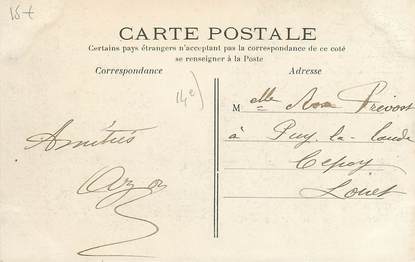 15+
CARTE POSTALE
Certains pays étrangers n'acceptant pas la correspondance de ce coté
se renseigner à la Poste
Correspondance
Adresse
14e)
Melle Rose Prévost
à Puy-la-laude
Cepoy
Loiret
Amitiés